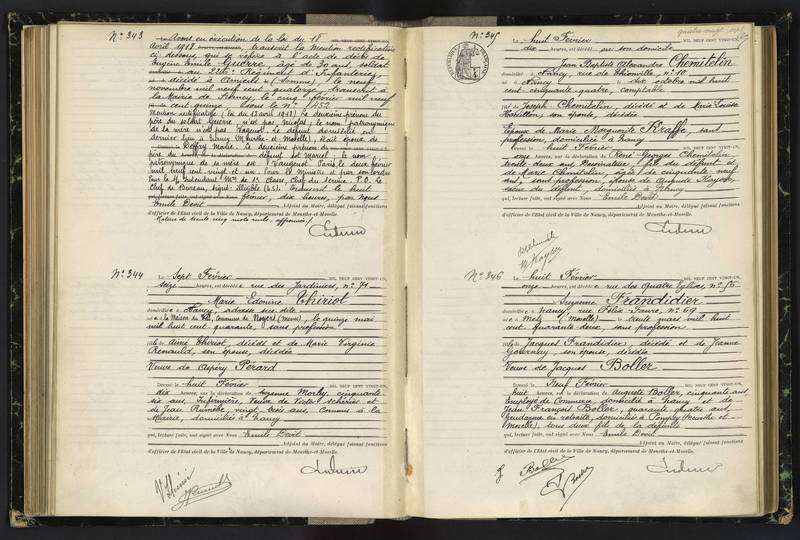 N° 343
Avons en exécution de la loi du 18
Avril 1918, transcrit la Mention rectificative
ci-dessous, qui se réfère à l'acte de décès de
Eugène Emile Guerre, âgé de 30 ans, soldat
au 226e Régiment d'Infanterie,
décédé à (Somme), le neuf
novembre mil neuf cent quatorze, transcrit à
la Mairie de Nancy le cinq février mil neuf
cent quinze, sous le n° 452
Mention rectificative: (loi du 18 avril 1918) Le deuxième prénom du
père du soldat Guerre, n'est pas Nicolas; le nom patronymique
de la mère n'est pas Le défunt domicilié en
dernier lieu à Nancy (Meurthe-et-Moselle), était époux de
Marie. Le deuxième prénom du
père du défunt est Marcel; le nom
patronymique de la mère est Paris, le deux février
mil neuf cent vingt et un. Pour le Ministre et par son ordre
Pour le S/ Intendant Mre de 1e Classe, Chef du Service P.O. Le
Chef de Bureau, signé: illisible (L.S.). Transcrit le huit
février, dix heures, par Nous
Emile Devit Adjoint au Maire, délégué faisant fonctions
d'officier de l'Etat civil de la Ville de Nancy, département de Meurthe-et-Moselle.
Rature de trente cinq mots nuls, approuvés
N° 344
Le Sept Février MIL NEUF CENT VINGT-UN,
seize heures, est décédée rue des Jardiniers, n° 71
Marie Edonine Thiriot
domiciliée à Nancy, adresse susdite
née à la Maison du Val, Commune de Noyers (Meuse), le quinze mai
mil huit cent quarante, sans profession
fille de Aimé Thiriot, décédé et de Marie Virginie
Renauld, son épouse, décédée
Veuve de Pérard
Dressé le huit Février MIL NEUF CENT VINGT-UN,
dix heures, sur la déclaration de Suzanne Morly, cinquante
six ans, Infirmière, Veuve de Victor et
de Jean vingt trois ans, Commis à la
Mairie, domiciliés à Nancy
qui, lecture faite, ont signé avec Nous Emile Devit
Adjoint au Maire, délégué faisant fonctions
d'officier de l'Etat civil de la Ville de Nancy, département de Meurthe-et-Moselle.
N° 345
Le huit Février MIL NEUF CENT VINGT-UN,
dix heures, est décédé en son domicile
Jean Baptiste Alexandre Chemitelin
domicilié à Nancy, rue de Thionville, n° 10
né à Nancy le dix octobre mil huit
cent cinquante quatre, comptable
fils de Joseph Chemitelin, décédé et de Marie Louise
son épouse, décédée
Epoux de Marie Marguerite Kraffe, sans
profession, domiciliée à Nancy
Dressé le huit Février MIL NEUF CENT VINGT-UN,
onze heures, sur la déclaration de René Georges Chemitelin
trente deux ans, fils du défunt et
de Marie Chemitelin, âgée de cinquante neuf
ans, sans profession, épouse de Auguste
soeur du défunt, domiciliés à Nancy
qui, lecture faite, ont signé avec Nous Emile Devit
Adjoint au Maire, délégué faisant fonctions
d'officier de l'Etat civil de la Ville de Nancy, département de Meurthe-et-Moselle.
N° 346
Le huit Février MIL NEUF CENT VINGT-UN,
onze heures, est décédée rue des Quatre Eglises, n°
Suzanne Frandidier
domiciliée à Nancy, rue Félix Faure, n° 69
née à Metz (Moselle) le trente mars mil huit
cent quarante deux, sans profession
fille de Jacques Frandidier, décédé et de Jeanne
son épouse, décédée
Veuve de Jacques Boller
Dressé le Neuf Février MIL NEUF CENT VINGT-UN,
huit heures, sur la déclaration de Auguste Boller, cinquante ans,
Employé de Commerce, domicilié à Nancy et de
Jean François Boller, quarante quatre ans,
Gendarme en retraite, domicilié à Pompey (Meurthe-et-
Moselle), tous deux fils de la défunte
qui, lecture faite, ont signé avec Nous Emile Devit
Adjoint au Maire, délégué faisant fonctions
d'officier de l'Etat civil de la Ville de Nancy, département de Meurthe-et-Moselle.
Boller